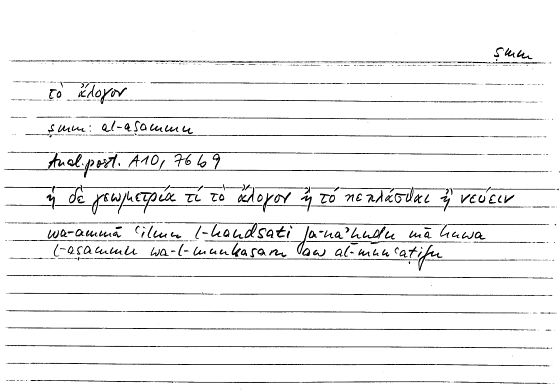 ṣmm
τὸ ἄλογον
ṣmm: al-aṣammu
Anal. post. A10, 76 b 9
ἡ δὲ γεωμετρία τί τὸ ἄλογον ἢ τὸ κεκλάσθαι ἢ νεύειν
wa-ammā ʿilmu l-handsati fa-naʾḫuḏu mā huwa
l-aṣammu wa-l-munkasaru aw al-munʿaṭifu